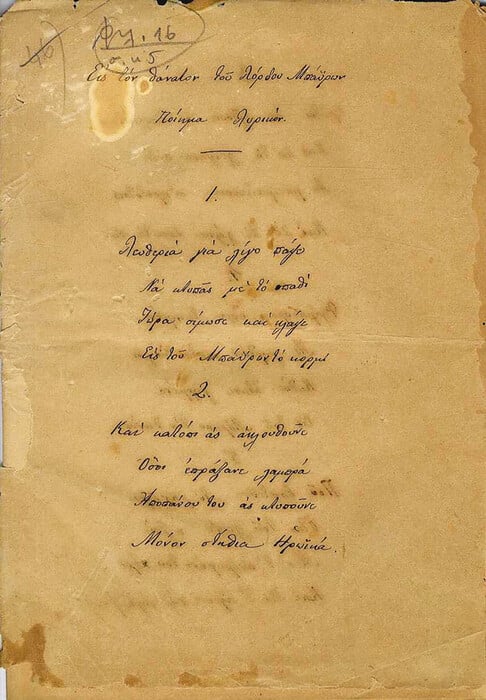 Φχ. 16
Εἰς τὸν θάνατον τοῦ Λόρδου Μπάϋρον
Ποίημα Λυρικόν.
1.
Λευθεριά γιὰ λίγο πάψε
Νὰ κτυπᾶς μὲ τὸ σπαθί
Τώρα σίμωσε καὶ κλάψε
Εἰς τοῦ Μπάϋρον τὸ κορμί
2.
Καὶ κατόπι ἂς ἀκλουθοῦνε
Ὅσοι ἐπράξανε λαμπρά
Ἀποπάνου του ἂς κτυποῦνε
Μόνον στήθια Ἡρωϊκά.